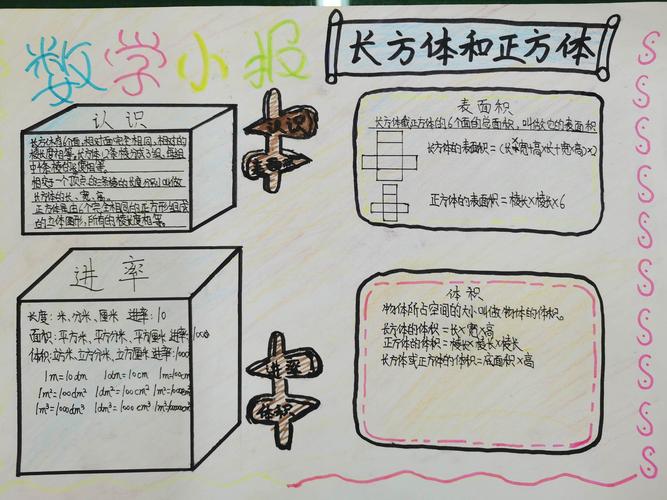 数学小报
长方体和正方体
认识
长方体有6个面,相对面完全相同,相对的
棱长度相等。长方体12条棱分成3组,每组
中4条棱的长度相等。
相交于一个顶点的三条棱的长度分别叫做
长方体的长、宽、高。
正方体是由6个完全相同的正方形组成
的立体图形,所有的棱长度相等。
认识
表面积
长方体或正方体的6个面的总面积,叫做它的表面积
长方体的表面积=(长×宽+高×长+宽×高)×2
正方体的表面积=棱长×棱长×6
进率
长度:米、分米、厘米 进率:10
面积:平方米、平方分米、平方厘米 进率:100
体积:立方米、立方分米、立方厘米 进率:1000
1m=10dm 1dm=10cm 1m=100cm
1m²=100dm² 1dm²=100cm² 1m²=10000cm²
1m³=1000dm³ 1dm³=1000cm³ 1m³=1000000cm³
进率
体积
体积
物体所占空间的大小叫做物体的体积。
长方体的体积=长×宽×高
正方体的体积=棱长×棱长×棱长
长方体或正方体的体积=底面积×高